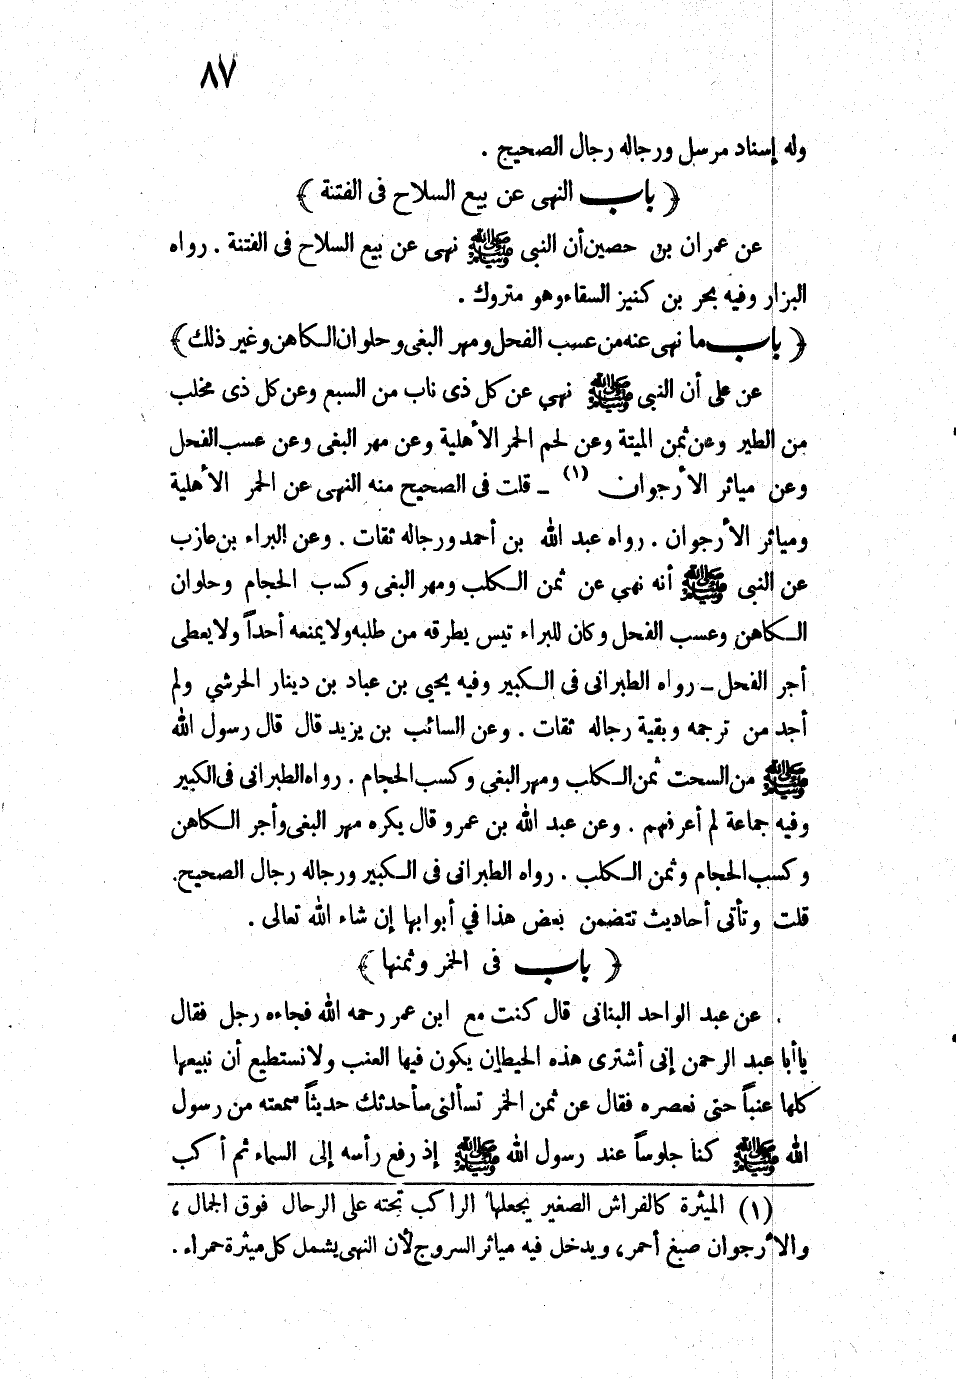 ٨٧
وله إسناد مرسل ورجاله رجال الصحيح .
﴿ باب النهى عن بيع السلاح فى الفتنة ﴾
عن عمران بن حصين أن النبى ﷺ نهى عن بيع السلاح فى الفتنة . رواه
البزار وفيه بحر بن كنيز السقاء وهو متروك .
﴿ باب ما نهى عنه من عسب الفحل ومهر البغى وحلوان الكاهن وغير ذلك ﴾
عن على أن النبى ﷺ نهي عن كل ذى ناب من السبع وعن كل ذى مخلب
من الطير وعن ثمن الميتة وعن لحم الحمر الأهلية وعن مهر البغى وعن عسب الفحل
وعن مياثر الأرجوان (١) ـ قلت فى الصحيح منه النهى عن الحمر الأهلية
ومياثر الأرجوان . رواه عبد الله بن أحمد ورجاله ثقات . وعن البراء بن عازب
عن النبى ﷺ أنه نهي عن ثمن الكلب ومهر البغى وكسب الحجام وحلوان
الكاهن وعسب الفحل وكان للبراء تيس يطرقه من طلبه ولا يمنعه أحداً ولا يعطى
أجر الفحل ـ رواه الطبرانى فى الكبير وفيه يحيي بن عباد بن دينار الحرشي ولم
أجد من ترجمه وبقية رجاله ثقات . وعن السائب بن يزيد قال قال رسول الله
ﷺ من السحت ثمن الكلب ومهر البغى وكسب الحجام . رواه الطبرانى فى الكبير
وفيه جماعة لم أعرفهم . وعن عبد الله بن عمرو قال يكره مهر البغى وأجر الكاهن
وكسب الحجام وثمن الكلب . رواه الطبرانى فى الكبير ورجاله رجال الصحيح.
قلت وتأتى أحاديث تتضمن بعض هذا في أبوابها إن شاء الله تعالى .
﴿ باب فى الخمر وثمنها ﴾
عن عبد الواحد البنانى قال كنت مع ابن عمر رحمه الله فجاءه رجل فقال
ياأبا عبد الرحمن إنى أشترى هذه الحيطان يكون فيها العنب ولا نستطيع أن نبيعها
كلها عنباً حتى نعصره فقال عن ثمن الخمر تسألنى سأحدثك حديثاً سمعته من رسول
الله ﷺ كنا جلوساً عند رسول الله ﷺ إذ رفع رأسه إلى السماء ثم أكب
(١) الميثرة كالفراش الصغير يجعلها الراكب تحته على الرحال فوق الجمال ،
والأرجوان صبغ أحمر، ويدخل فيه مياثر السروج لأن النهى يشمل كل ميثرة حمراء .